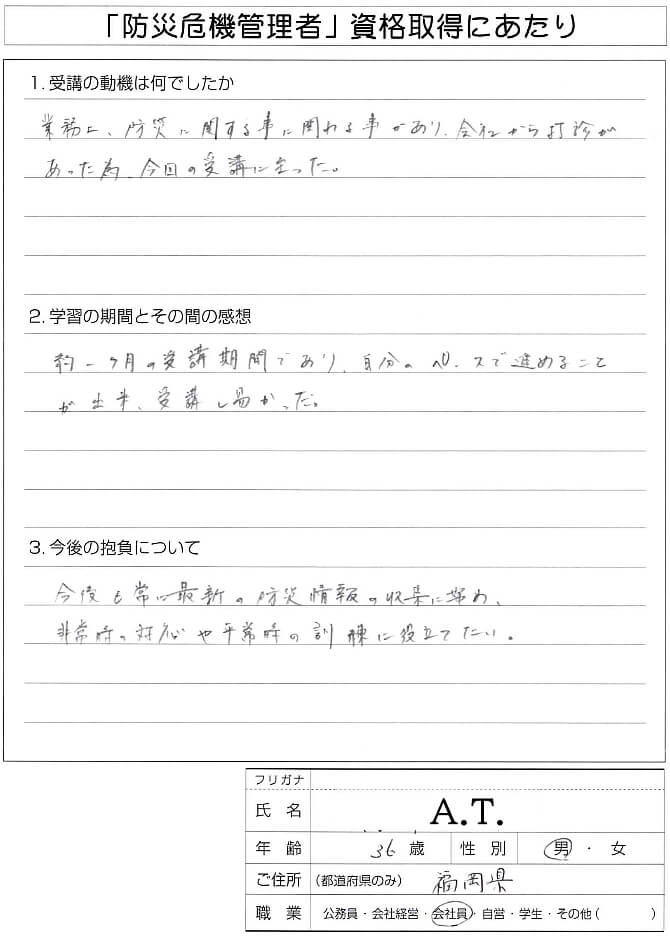 「防災危機管理者」資格取得にあたり
1. 受講の動機は何でしたか
業務上、防災に関する事に関わる事があり、会社から打診が
あった為、今回の受講に至った。
2. 学習の期間とその間の感想
約一ヶ月の受講期間であり、自分のペースで進めること
が出来、受講し易かった。
3. 今後の抱負について
今後も常に最新の防災情報の収集に努め、
非常時の対応や平常時の訓練に役立てたい。
フリガナ
氏 名 A.T.
年 齢 36 歳 性 別 男 ・ 女
ご住所 (都道府県のみ) 福岡県
職 業 公務員・会社経営・会社員・自営・学生・その他 ( )